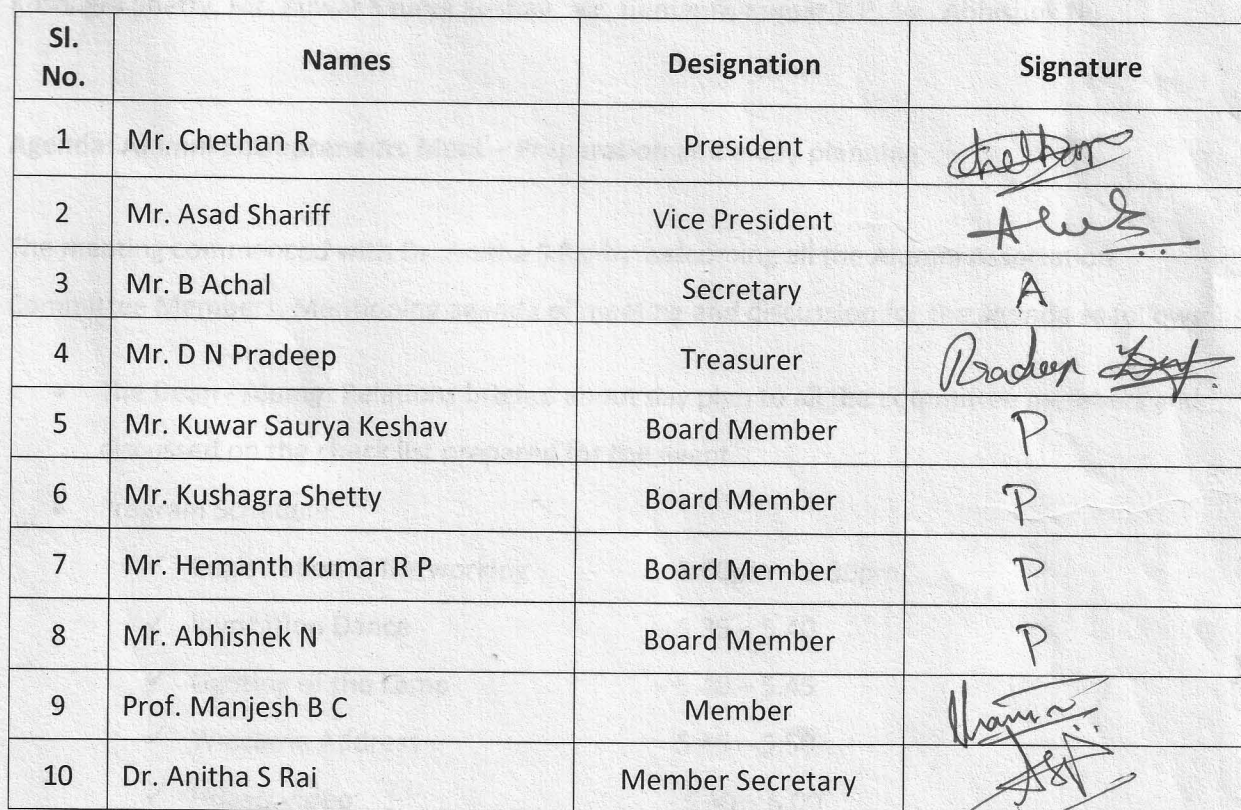 Sl. No. Names Designation Signature
1 Mr. Chethan R President Chethan
2 Mr. Asad Shariff Vice President
3 Mr. B Achal Secretary A
4 Mr. D N Pradeep Treasurer Pradeep
5 Mr. Kuwar Saurya Keshav Board Member P
6 Mr. Kushagra Shetty Board Member P
7 Mr. Hemanth Kumar R P Board Member P
8 Mr. Abhishek N Board Member P
9 Prof. Manjesh B C Member
10 Dr. Anitha S Rai Member Secretary